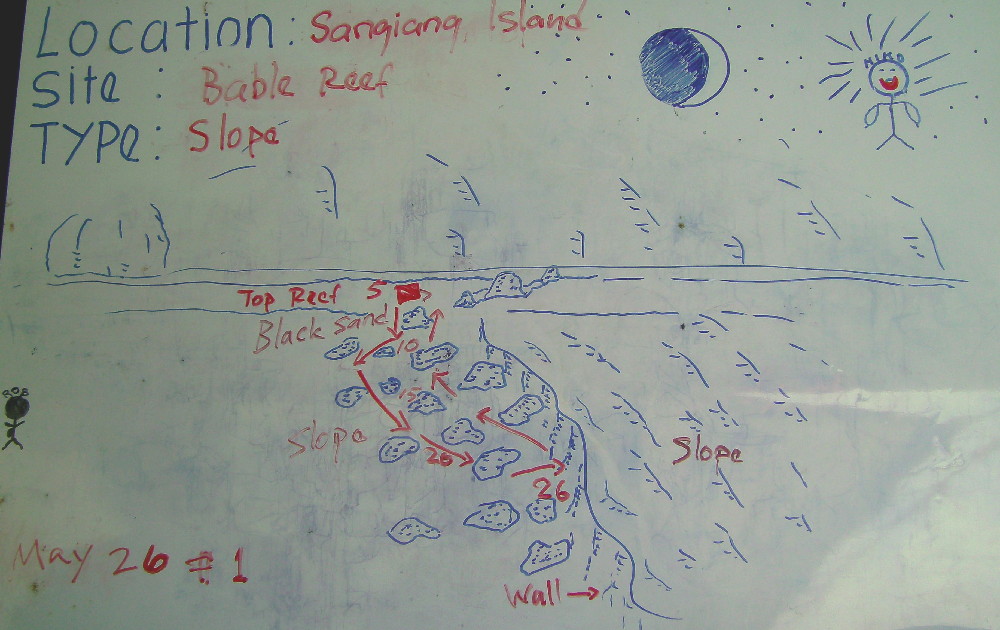 LOCATION: Sangiang Island
Site: Bable Reef
TYPE: Slope
MIKO
Top Reef 5
Black Sand
10
ROB
15
Slope
26
26
Slope
May 26 # 1
Wall